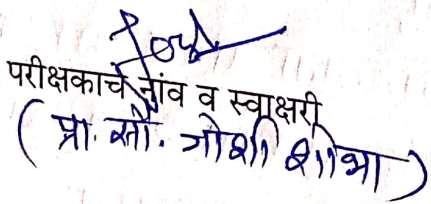 परीक्षकाचे नांव व स्वाक्षरी
(प्रा. सौ. जोशी शोभा)